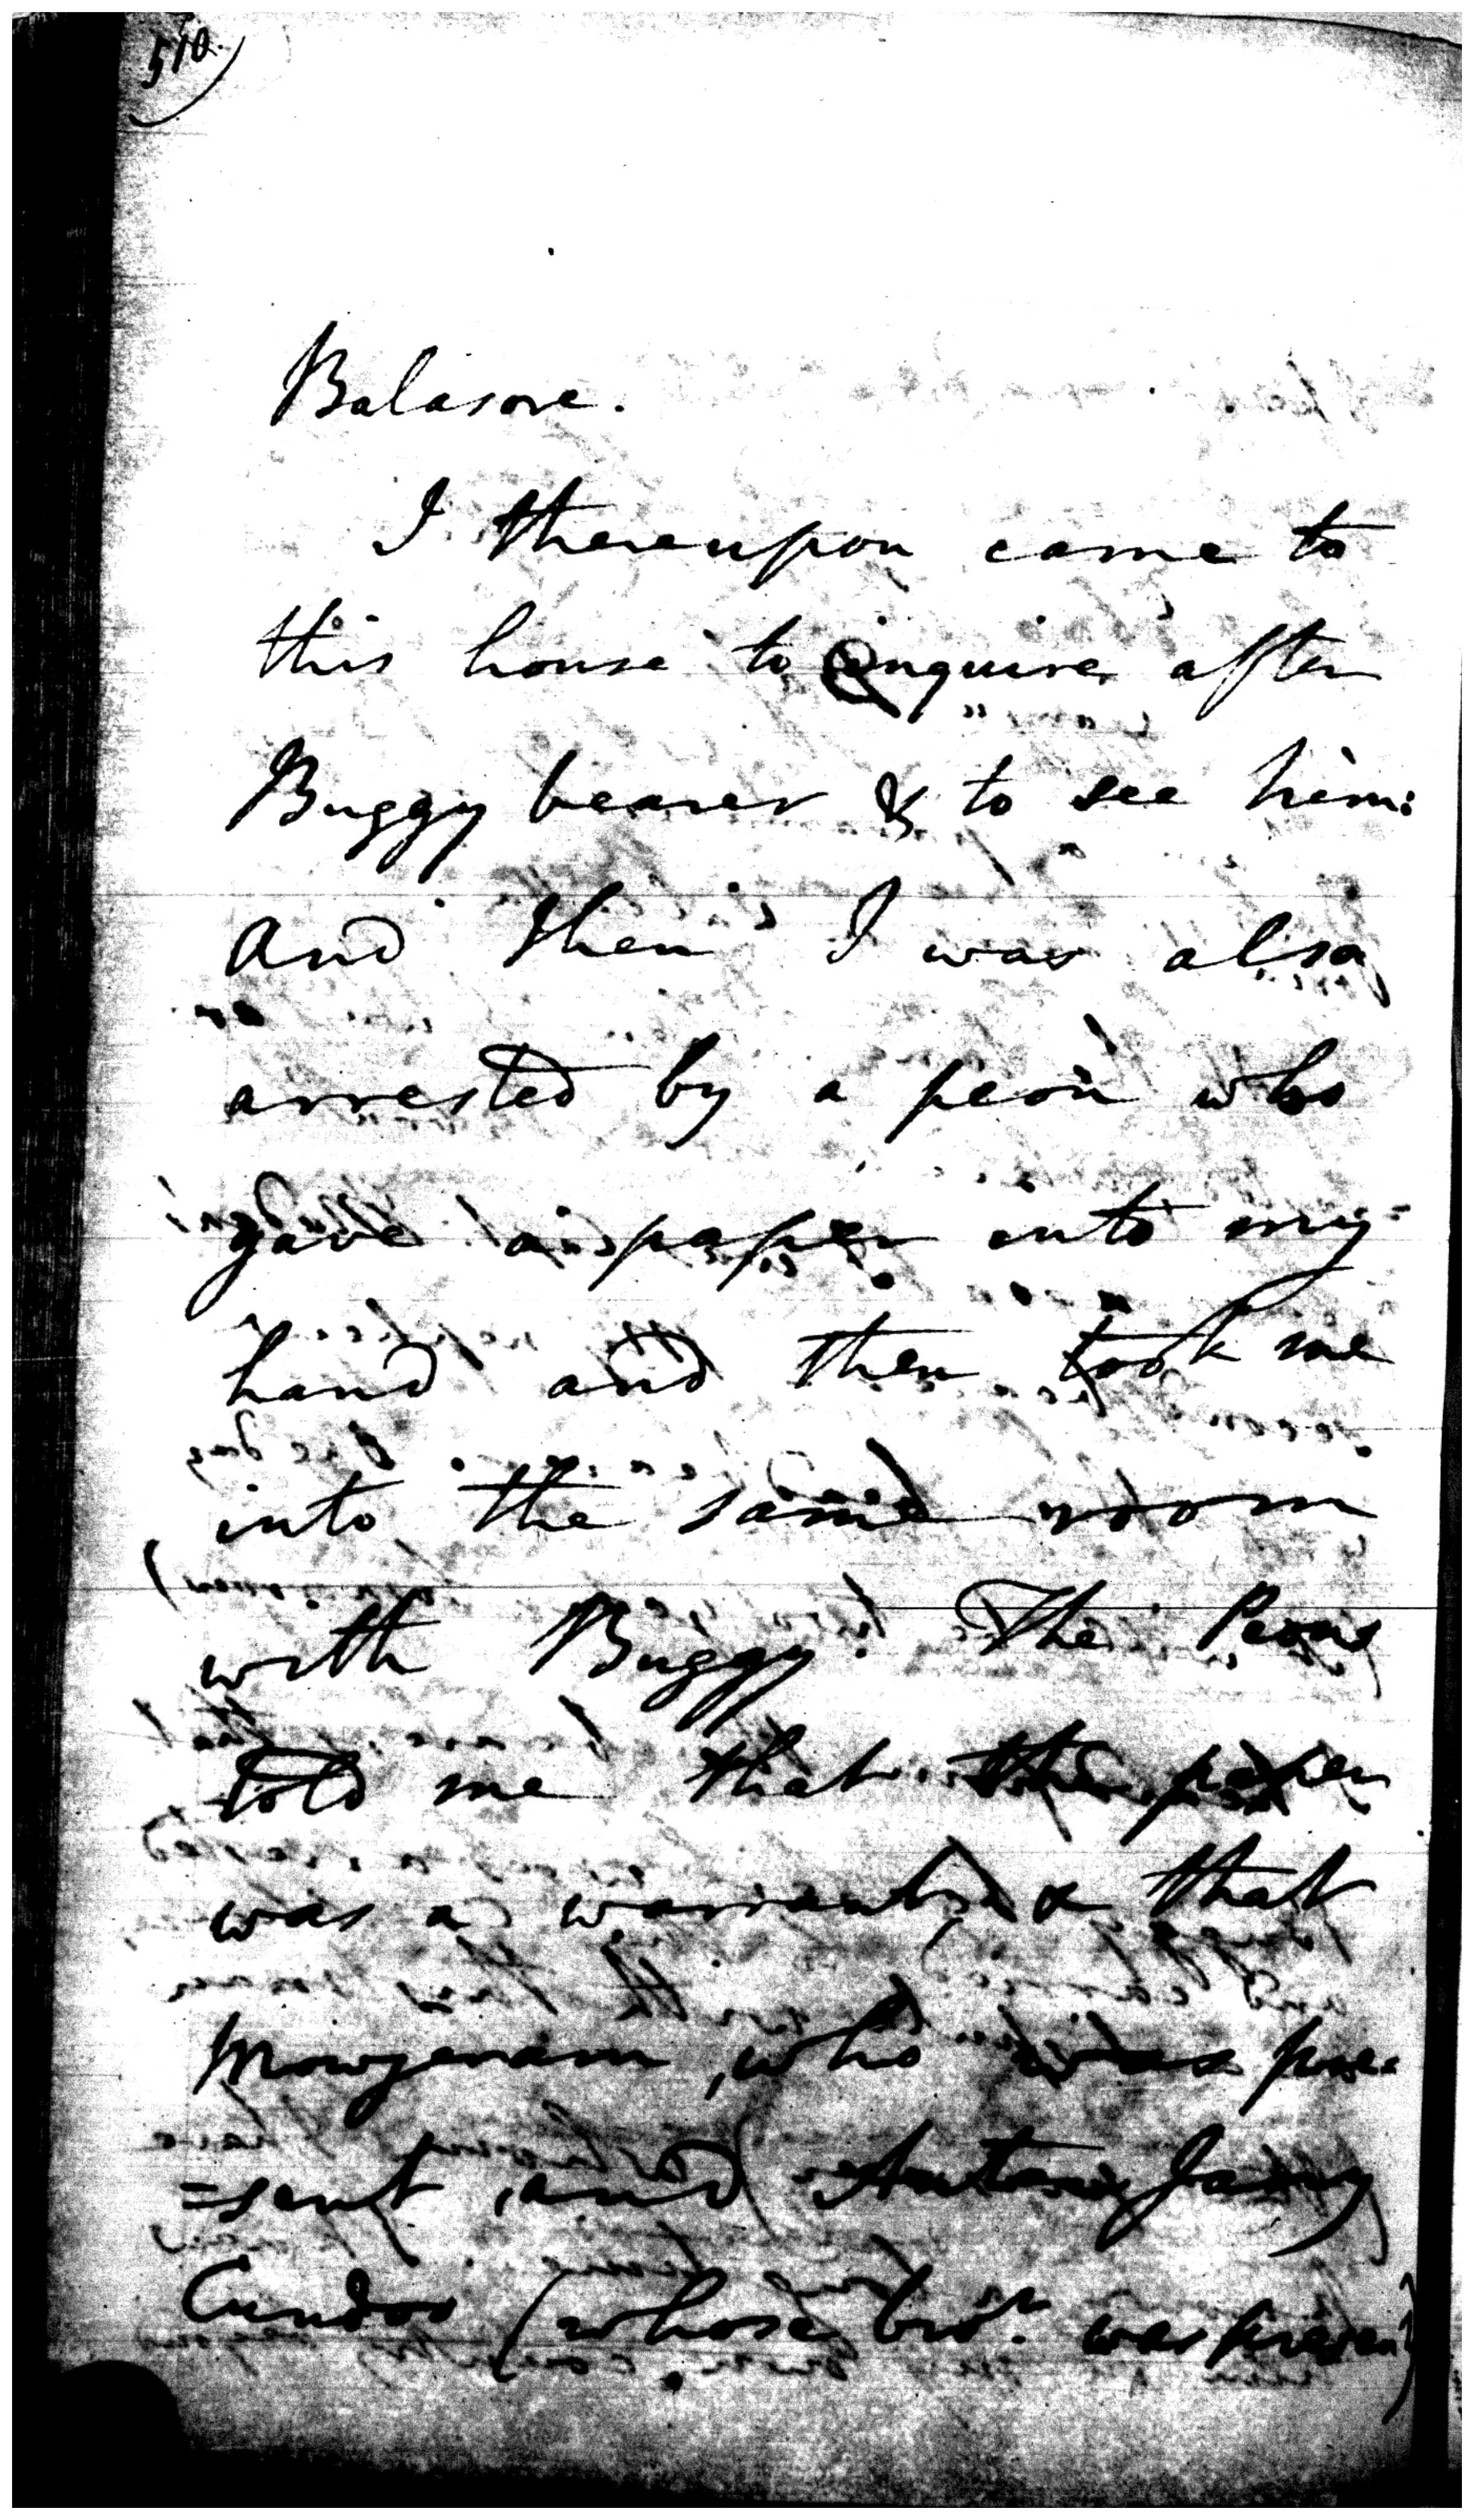 510.
Balasore.
I thereupon came to
this house to inquire after
Buggy bearer & to see him:
And then I was also
arrested by a peon who
gave a paper into my
hand and then took me
into the same room
with Buggy. The Peons
told me that the paper
was a warrant, & that
who was pre=
=sent, and
(whose bror. was present)